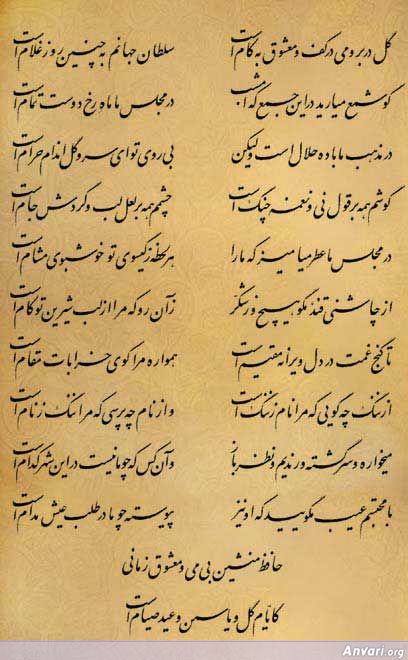 گل در بر و می در کف و معشوق به کام است سلطان جهانم به چنین روز غلام است
گو شمع میارید در این جمع که امشب در مجلس ما ماه رخ دوست تمام است
در مذهب ما باده حلال است ولیکن بی روی تو ای سرو گل اندام حرام است
گوشم همه بر قول نی و نغمه چنگ است چشمم همه بر لعل لب و گردش جام است
در مجلس ما عطر میامیز که ما را هر لحظه ز گیسوی تو خوشبوی مشام است
از چاشنی قند مگو هیچ و ز شکر ز آن رو که مرا از لب شیرین تو کام است
تا گنج غمت در دل ویرانه مقیم است همواره مرا کوی خرابات مقام است
از ننگ چه گویی که مرا نام ز ننگ است وز نام چه پرسی که مرا ننگ ز نام است
میخواره و سرگشته و رندیم و نظرباز وآن کس که چو ما نیست در این شهر کدام است
با محتسبم عیب مگویید که او نیز پیوسته چو ما در طلب عیش مدام است
حافظ منشین بی می و معشوق زمانی
کایام گل و یاسمن و عید صیام است
Anvari.org